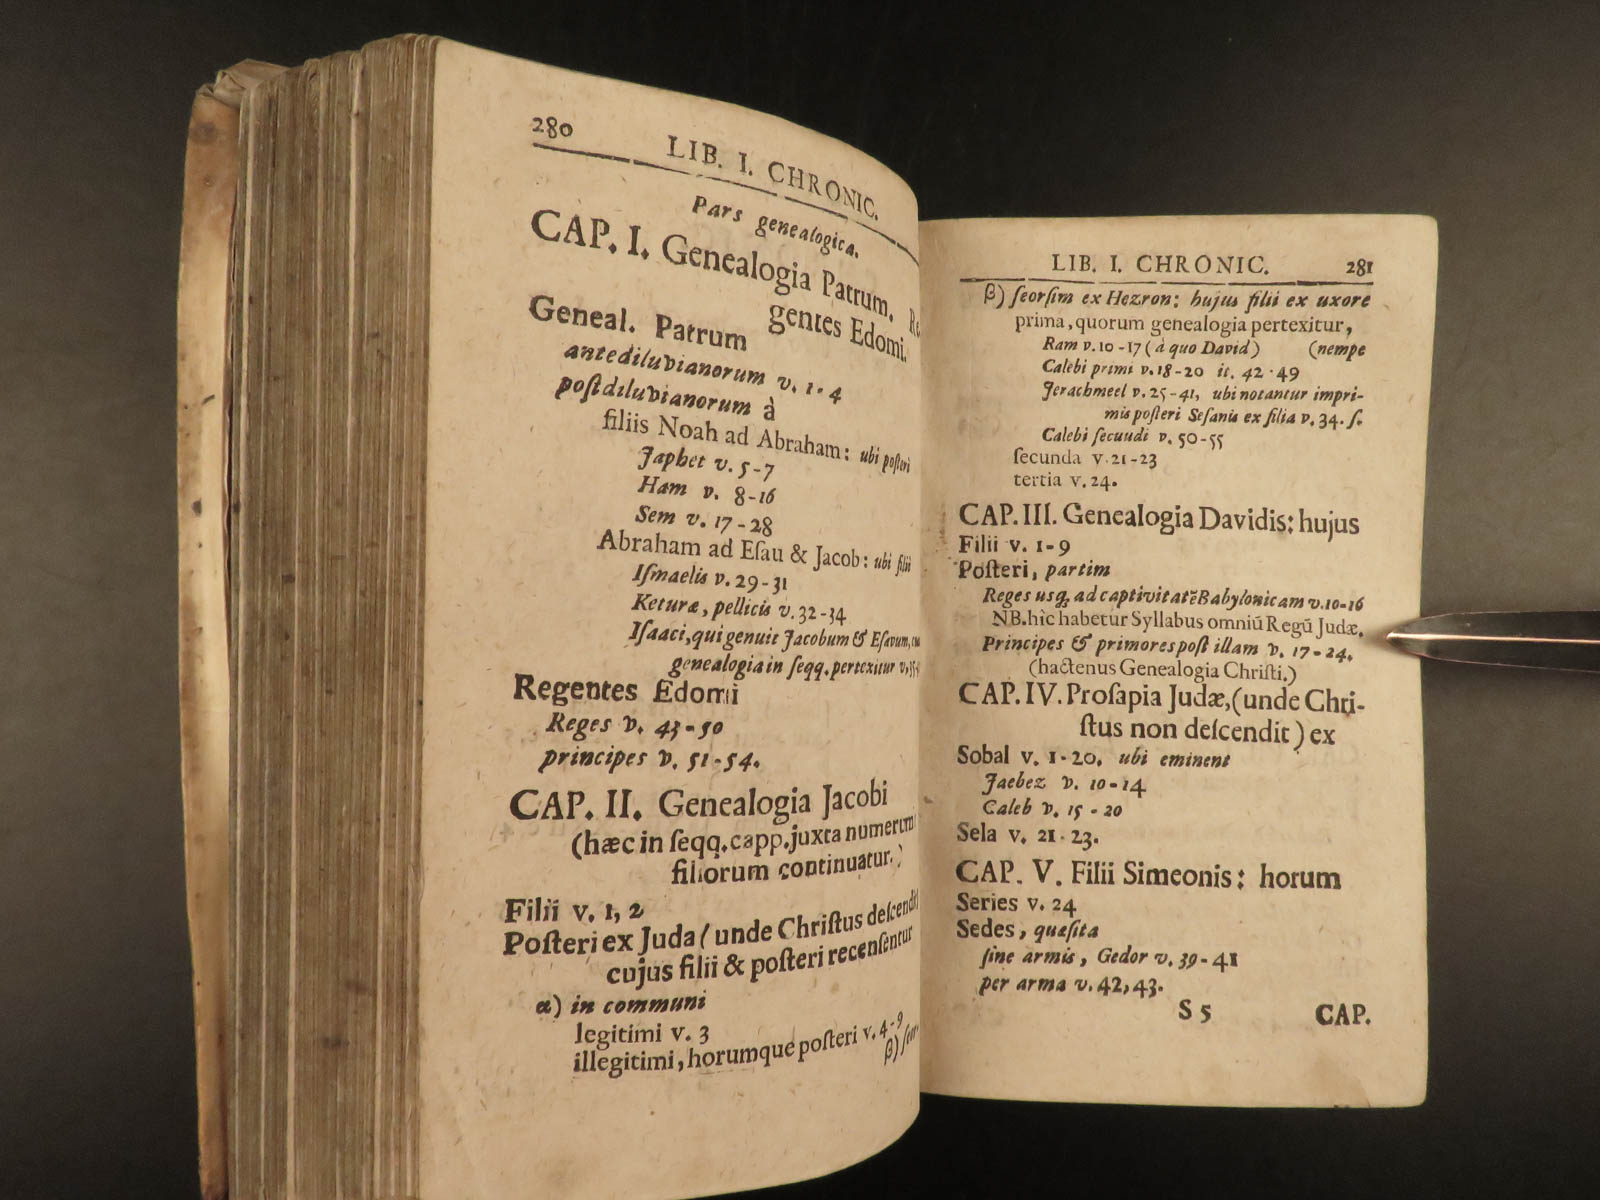 280 LIB. I. CHRONIC.
Pars genealogica.
CAP. I. Genealogia Patrum. Re
gentes Edomi.
Geneal. Patrum
antediluvianorum v. 1-4
poſtdiluvianorum à
filiis Noah ad Abraham: ubi poſteri
Japhet v. 5-7
Ham v. 8-16
Sem v. 17-28
Abraham ad Eſau & Jacob: ubi filii
Iſmaelis v. 29-31
Keturæ, pellicis v. 32-34
Iſaaci, qui genuit Jacobum & Eſavum,
genealogia in ſeqq. pertexitur
Regentes Edomi
Reges v. 43-50
principes v. 51-54.
CAP. II. Genealogia Jacobi
(hæc in ſeqq. capp. juxta numerum
filiorum continuatur.)
Filii v. 1, 2
Poſteri ex Juda (unde Chriſtus deſcendit
cujus filii & poſteri recenſentur
α) in communi
legitimi v. 3
illegitimi, horumque poſteri v. 4-9
β) ſeor
LIB. I. CHRONIC. 281
β) ſeorſim ex Hezron: hujus filii ex uxore
prima, quorum genealogia pertexitur,
Ram v. 10-17 (à quo David) (nempe
Calebi primi v. 18-20 it. 42-49
Jerachmeel v. 25-41, ubi notantur impri-
mis poſteri Seſanis ex filia v. 34. ſ.
Calebi ſecuudi v. 50-55
ſecunda v. 21-23
tertia v. 24.
CAP. III. Genealogia Davidis: hujus
Filii v. 1-9
Poſteri, partim
Reges usq; ad captivitatē Babylonicam v. 10-16
NB. hìc habetur Syllabus omniū Regū Judæ.
Principes & primores poſt illam v. 17-24.
(hactenus Genealogia Chriſti.)
CAP. IV. Proſapia Judæ, (unde Chri-
ſtus non deſcendit) ex
Sobal v. 1-20. ubi eminent
Jaebez v. 10-14
Caleb v. 15-20
Sela v. 21-23.
CAP. V. Filii Simeonis: horum
Series v. 24
Sedes, quæſita
ſine armis, Gedor v. 39-41
per arma v. 42, 43.
S 5 CAP.